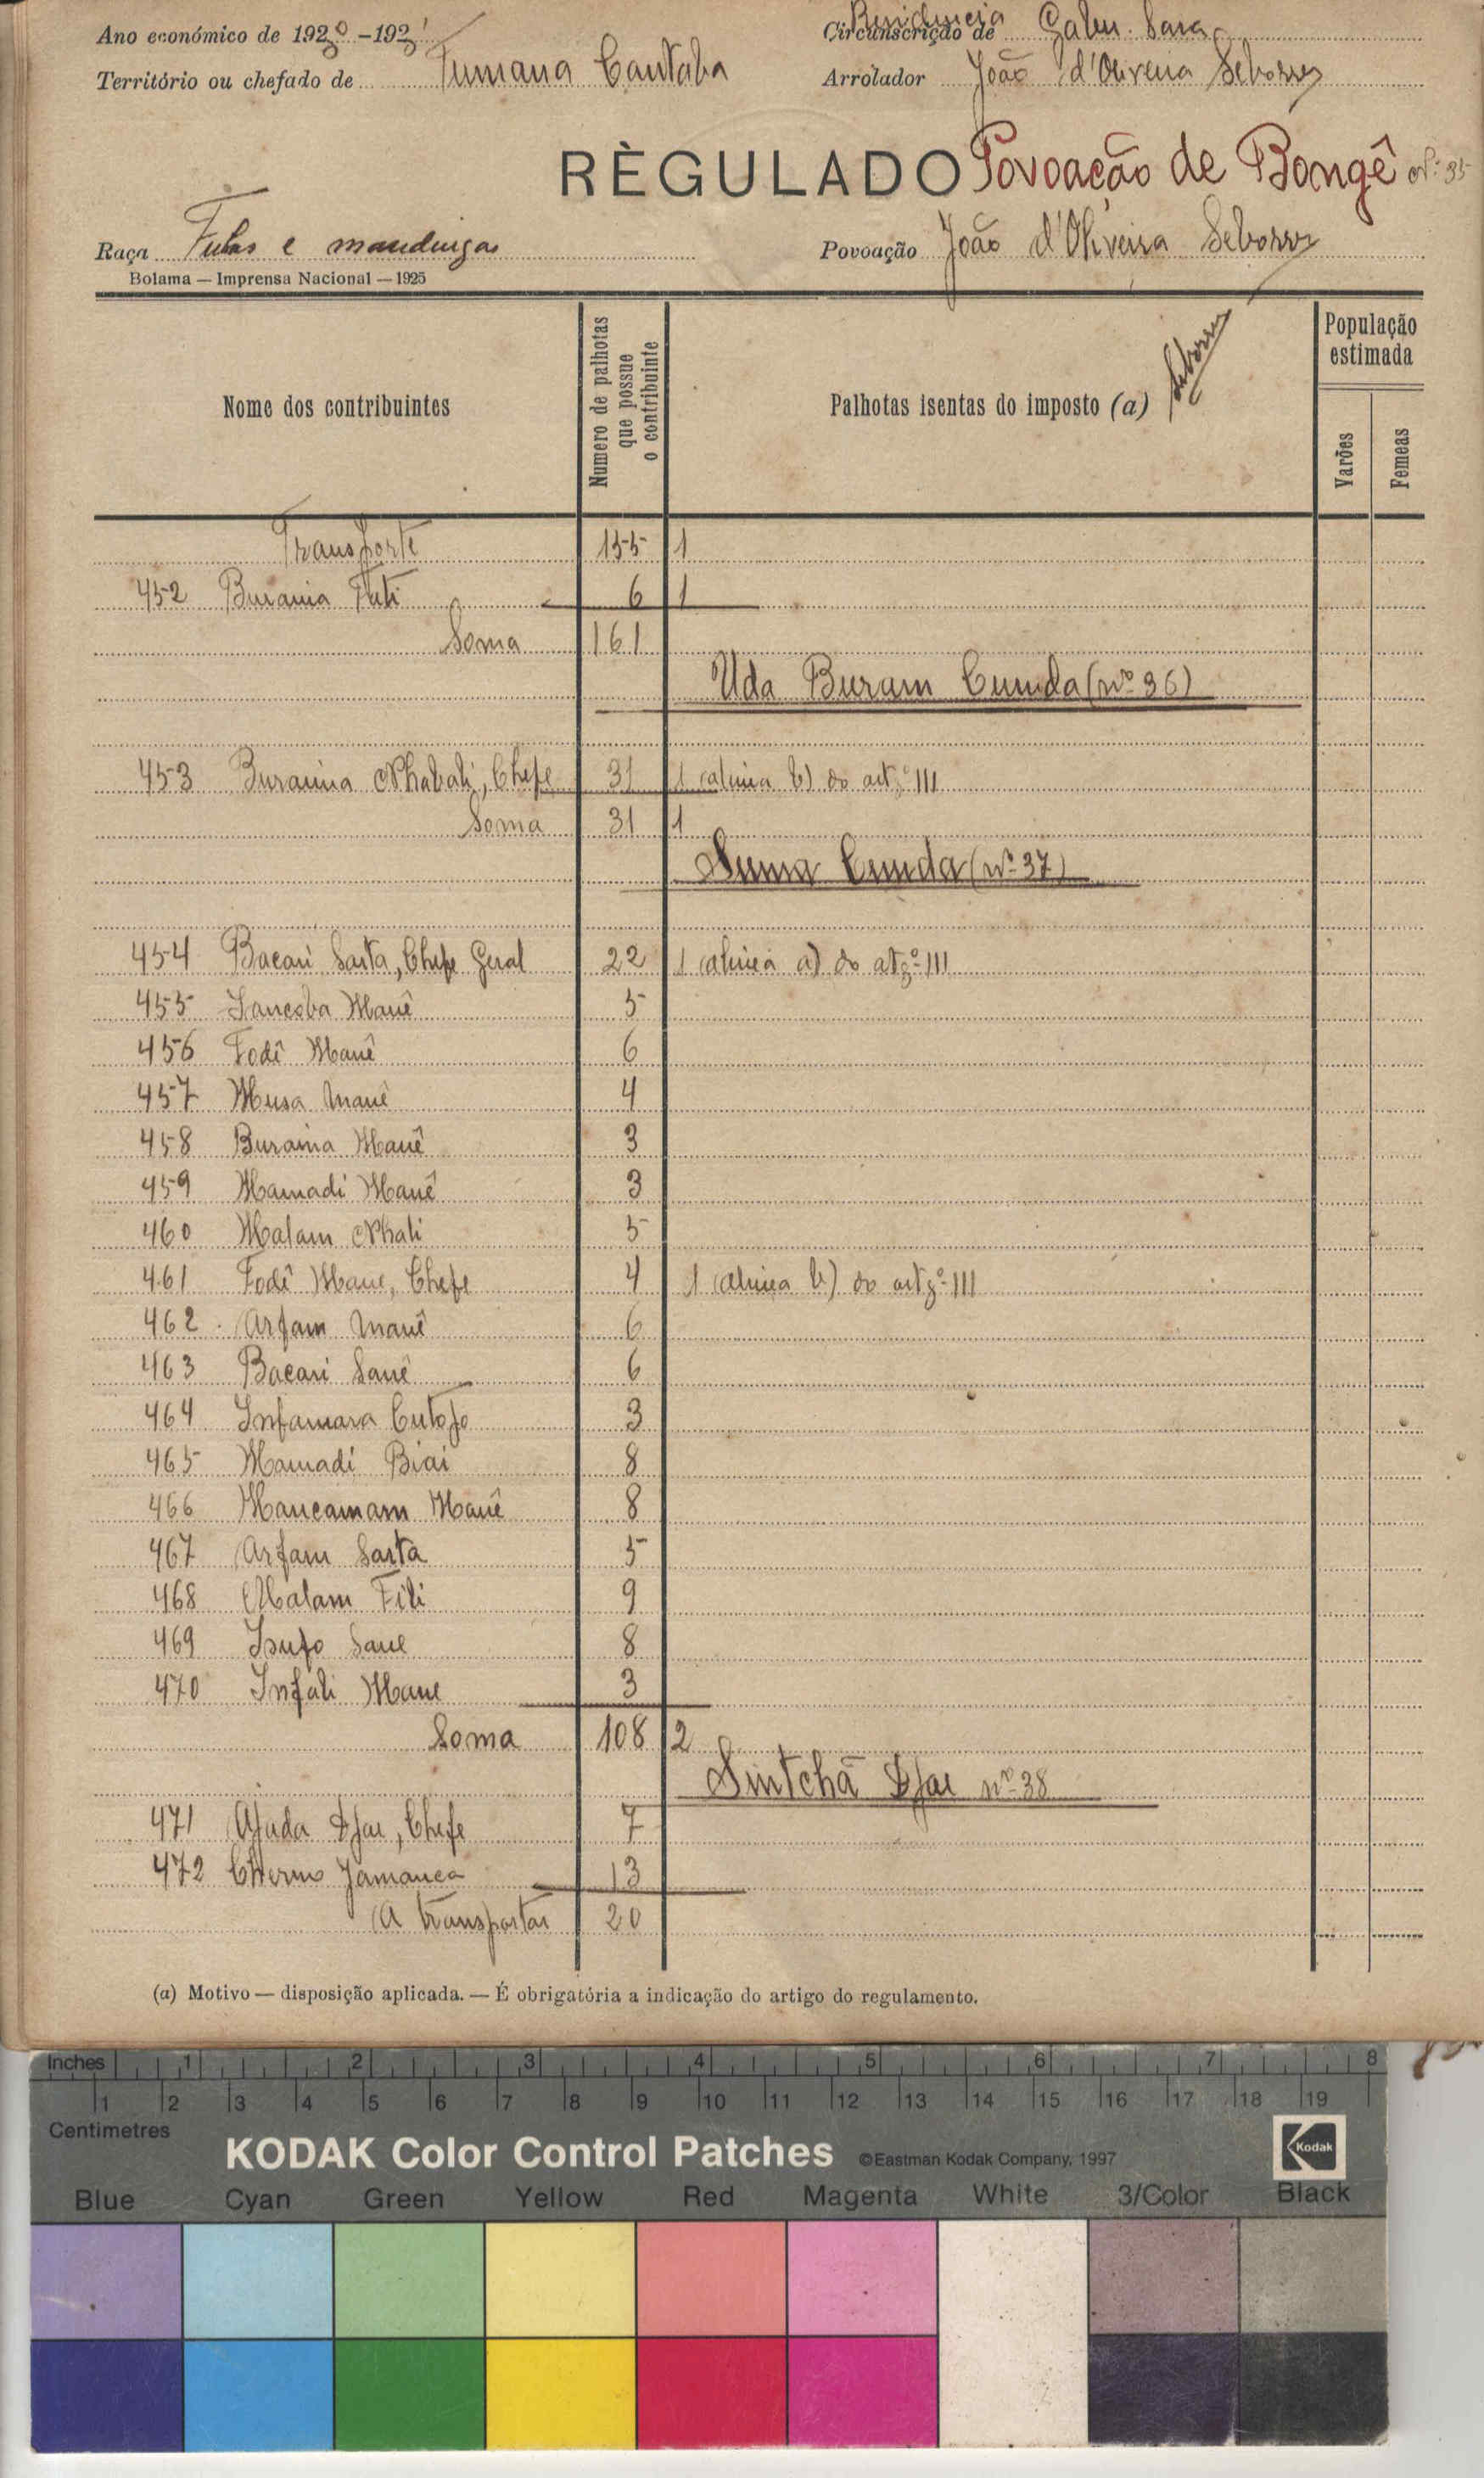 Ano económico de 1930-1931
Residencia
Circunscrição de Gabu-Sara
Território ou chefado de Tumana Cantaba
Arrolador João d'Oliveira
RÈGULADO Povoação de Bongê Nº 35
Raça Fulas e mandingas
Povoação João d'Oliveira
Bolama — Imprensa Nacional — 1925
Nome dos contribuintes
Numero de palhotas
que possue
o contribuinte
Palhotas isentas do imposto (a)
População
estimada
Varões
Femeas
Transporte 155 1
452 Buraima Fati 6 1
Soma 161
Uda Buram Cunda (nº 36)
453 Buraima Nhabali, Chefe 31 1 (alinea b) do artgº III
Soma 31 1
Suma Cunda (nº 37)
454 Bacari Santa, Chefe Geral 22 1 (alinea a) do atgº III
455 Sancoba Manê 5
456 Fodê Manê 6
457 Musa Manê 4
458 Buraima Manê 3
459 Mamadi Manê 3
460 Malam Nhali 5
461 Fodê Mane, Chefe 4 1 (alinea b) do artgº III
462 Arfam Manê 6
463 Bacari Sanê 6
464 Infamara Cutofo 3
465 Mamadi Biai 8
466 Mancamam Manê 8
467 Arfam Santa 5
468 Malam Fili 9
469 Isufo Sane 8
470 Infali Mane 3
Soma 108 2
Sintchã Djae nº 38
471 Ajuda Djae, Chefe 7
472 Cherno Jamanca 13
A transportar 20
(a) Motivo — disposição aplicada. — É obrigatória a indicação do artigo do regulamento.
Inches 1 2 3 4 5 6 7 8
1 2 3 4 5 6 7 8 9 10 11 12 13 14 15 16 17 18 19
Centimetres
KODAK Color Control Patches ©Eastman Kodak Company, 1997 Kodak
Blue Cyan Green Yellow Red Magenta White 3/Color Black